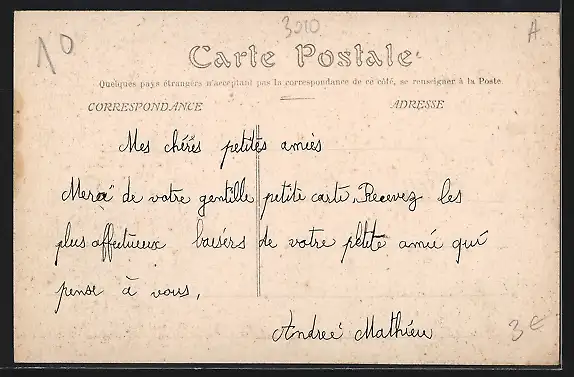 10
3010
A
Carte Postale
Quelques pays étrangers n'acceptant pas la correspondance de ce côté, se renseigner à la Poste
CORRESPONDANCE ADRESSE
Mes chéres petites amies
Merci de votre gentille petite carte, Recevez les
plus affectueux baisérs de votre petite amie qui
pense à vous,
Andreé Mathieu
3€